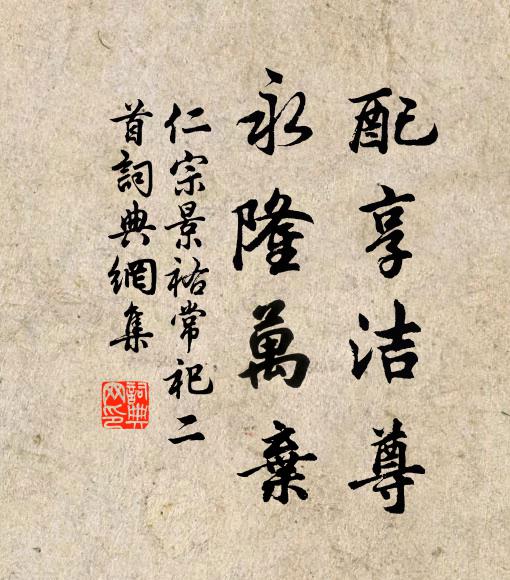 配享洁尊
永隆萬棄
仁宗景祐常祀二
首詞典網集
詞典网印